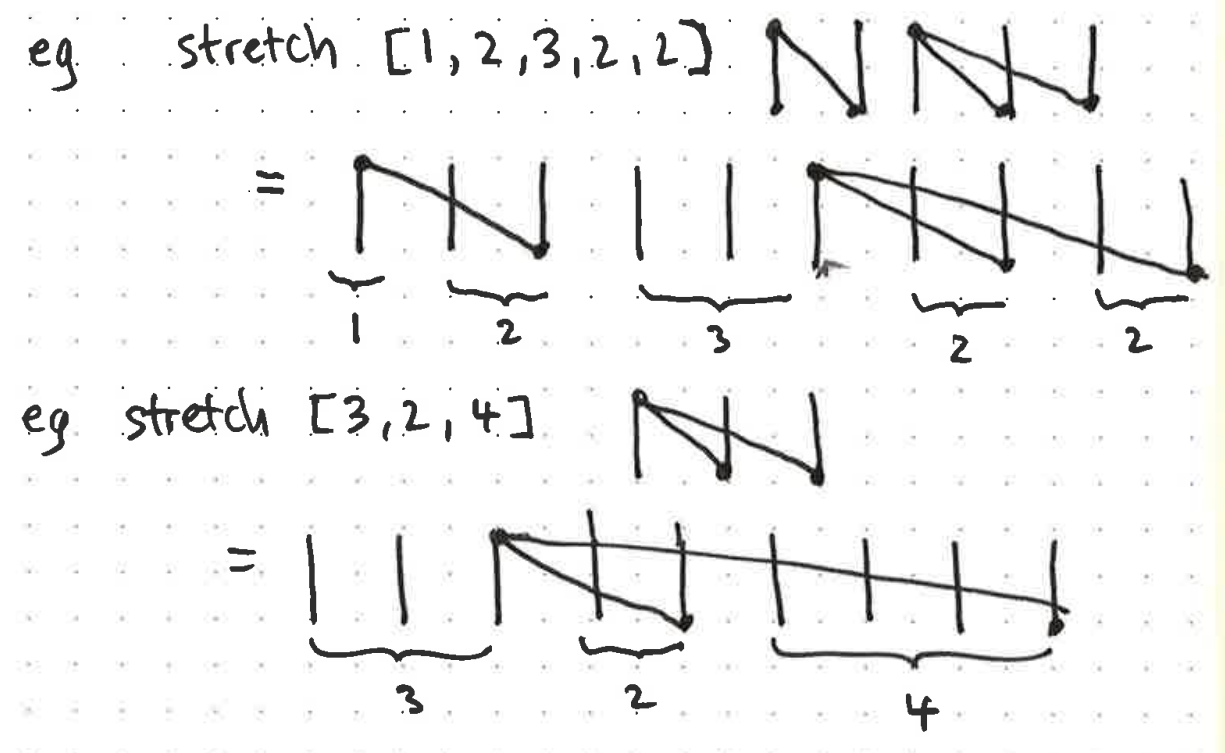 eg stretch [1,2,3,2,2]
=
1 2 3 2 2
eg stretch [3,2,4]
=
3 2 4